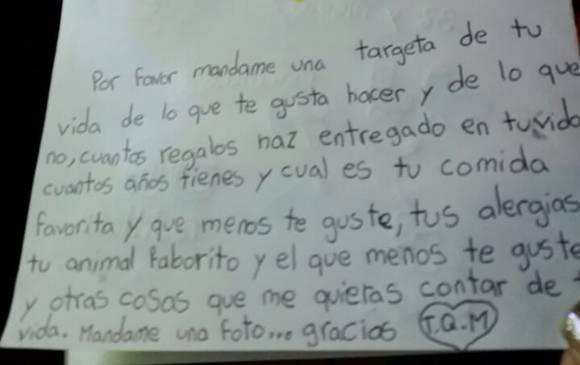 Por favor mandame una targeta de tu
vida de lo que te gusta hacer y de lo que
no, cuantos regalos haz entregado en tu vida
cuantos años tienes y cual es tu comida
favorita y que menos te guste, tus alergias
tu animal faborito y el que menos te guste
y otras cosas que me quieras contar de
vida. Mandame una foto... gracias T.Q.M